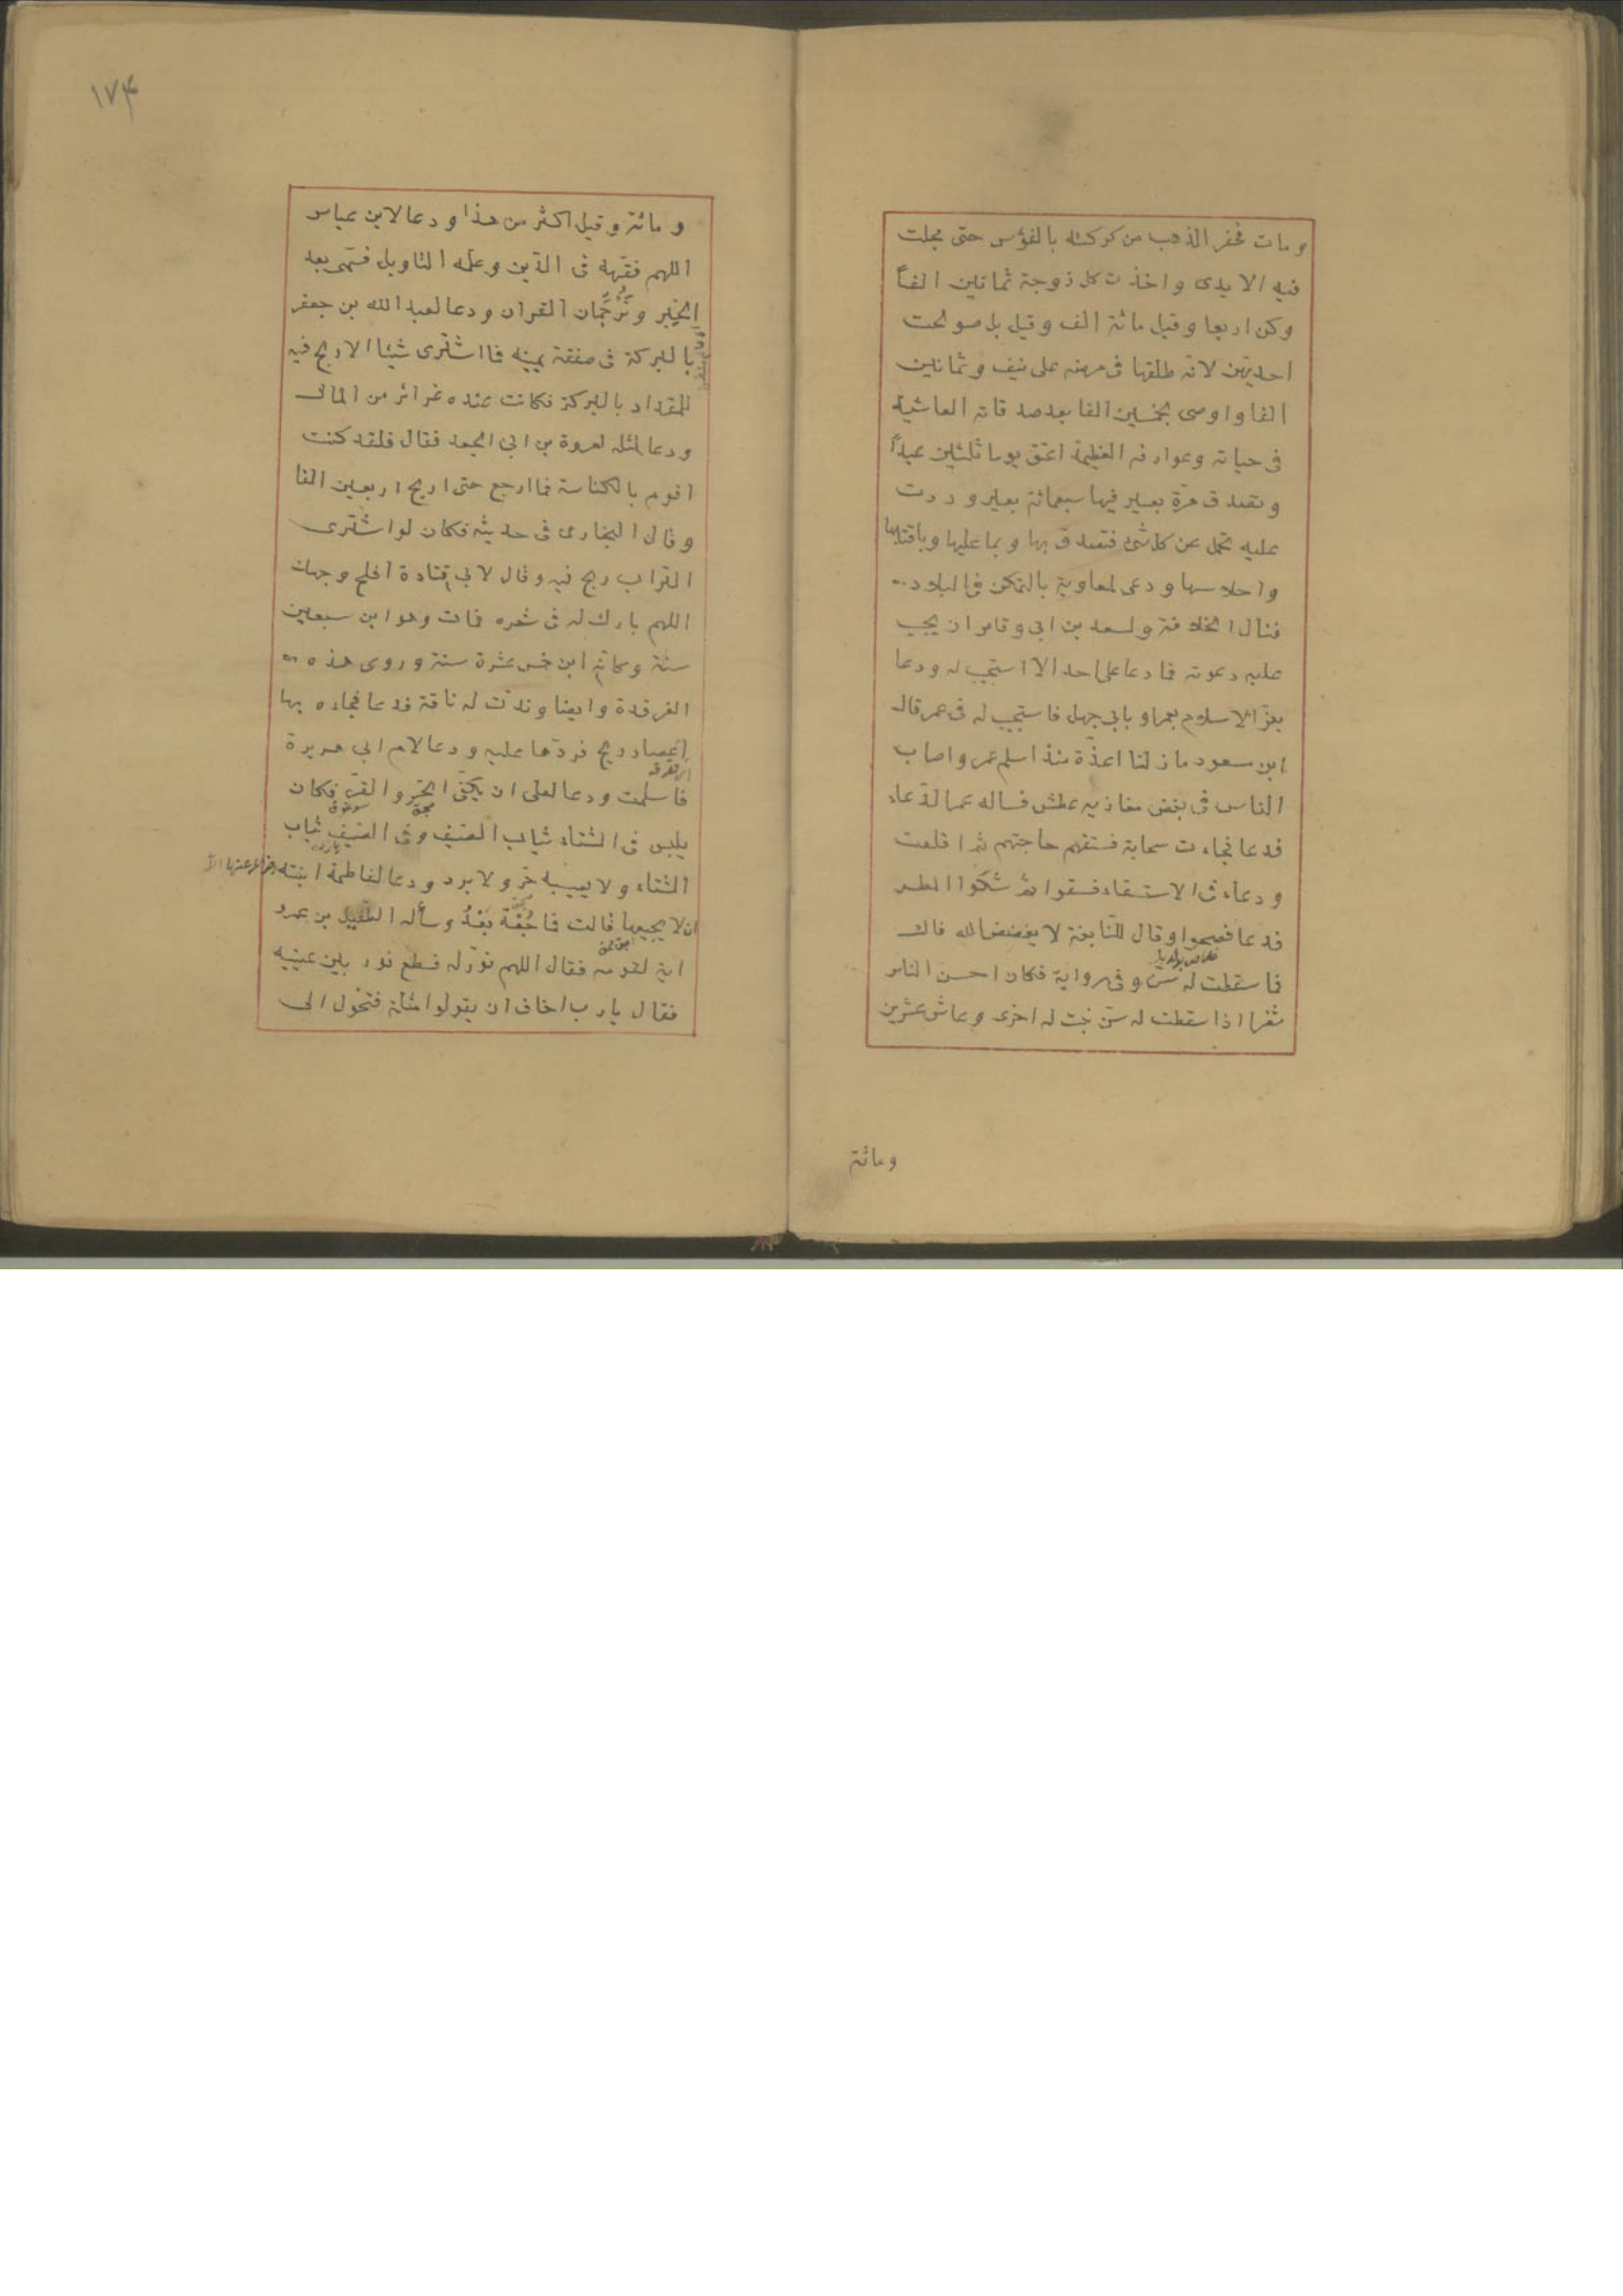 ومات فحفر الذهب من تركته بالفؤس حتى مجلت
فيه الايدى واخذت كل زوجة ثمانين الفاً
وكن اربعا وقيل مائة الف وقيل بل صولحت
احديهن لانه طلقها فى مرضه على نيف وثمانين
الفا واوصى بخمسين الفا بعد صدقاته الفاشية
فى حياته وعوارفه العظيمة اعتق يوما ثلثين عبداً
وتصدق مرّة بعير فيها سبعمائة بعير وردت
عليه تحمل من كل شئ فتصدق بها وبما عليها وباقتابها
واحلاسها ودعى لمعاوية بالتمكن فى البلاد
فنال الخلافة ولسعد بن ابى وقاص ان يجيب
عليه دعوته فما دعا على احد الا استجيب له ودعا
بعزّ الاسلام بعمر او بابى جهل فاستجيب له فى عمر قال
ابن سعود ما زلنا اعزّة منذ اسلم عمر واصاب
الناس فى بعض مغازيه عطش فساله عمر الدّعاء
فدعا فجاءت سحابة فسقتهم حاجتهم ثم اقلعت
ودعاء فى الاستسقاء فسقوا ثم شكوا المطر
فدعا فصحوا وقال للنابغة لا يفضض الله فاك
فما سقطت له سنّ وفى رواية فكان احسن الناس
ثغرا اذا سقطت له سنّ نبت له اخرى وعاش عشرين
ومائة
١٧٤
ومائة وقيل اكثر من هذا ودعا لابن عباس
اللهم فقهه فى الدّين وعلمه التاويل فسمى بعد
الحبر وترجمان القران ودعا لعبد الله بن جعفر
بالبركة فى صفقة يمينه فما اشترى شيئا الا ربح فيه
للمقداد بالبركة فكانت عنده غرائر من المال
ودعا لمثله لعروة بن ابى الجعد فقال فلقد كنت
اقوم بالكناسة فما ارجع حتى اربح اربعين الفا
وقال البخارى فى حديثه فكان لو اشترى
التراب ربح فيه وقال لابى قتادة افلح وجهك
اللهم بارك له فى شعره فمات وهو ابن سبعين
سنة وكانه ابن خمس عشرة سنة وروى هذه
الغرقدة وايضا وندّت له ناقة فدعا فجاءه بها
اعصار ريح فردّها عليه ودعا لام ابى هريرة
فاسلمت ودعا لعلى ان يكفى الحرّ والقرّ فكان
يلبس فى الشتاء ثياب الصيف وفى الصيف ثياب
الشتاء ولا يصيبه حرّ ولا برد ودعا لفاطمة ابنته
ان لا يجيعها قالت فما جُعْتُ بَعْدُ وسأله الطفيل بن عمرو
اية لقومه فقال اللهم نوّر له فسطع نور بين عينيه
فقال يا رب اخاف ان يقولوا مثلة فتحول الى